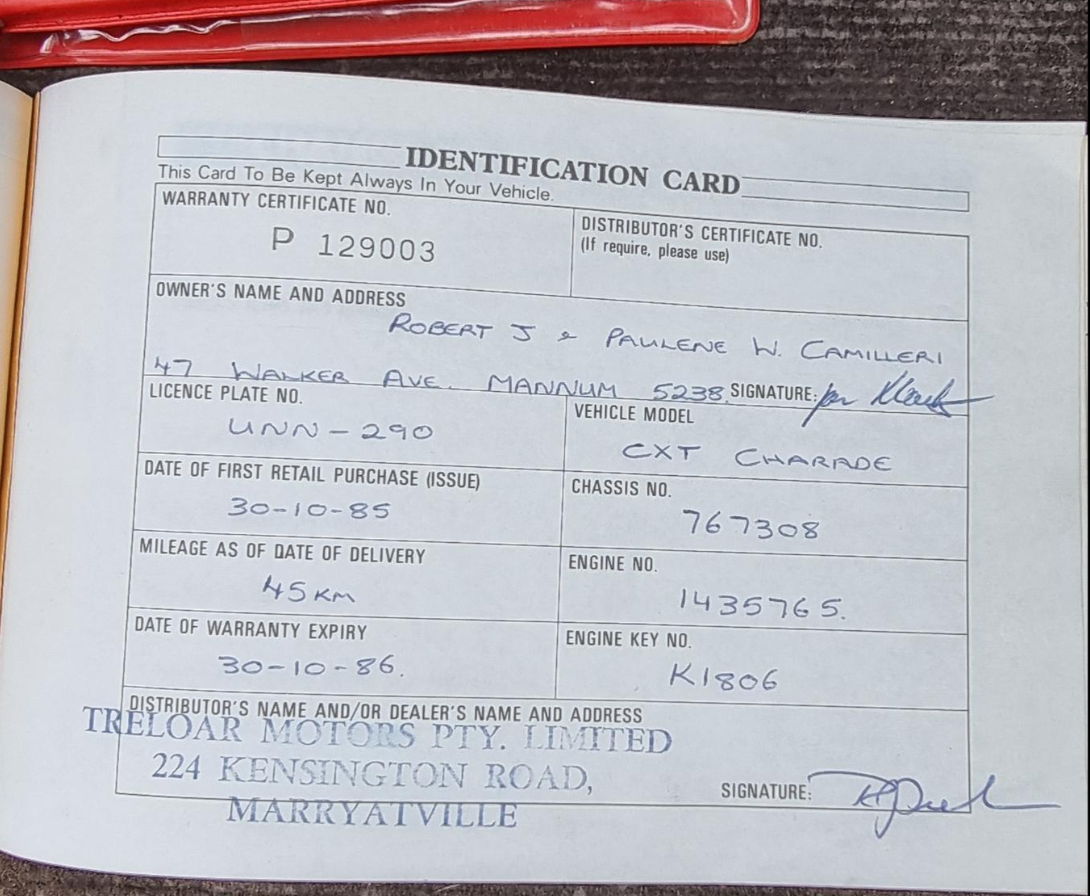 IDENTIFICATION CARD
This Card To Be Kept Always In Your Vehicle.
WARRANTY CERTIFICATE NO.
P 129003
DISTRIBUTOR'S CERTIFICATE NO.
(If require, please use)
OWNER'S NAME AND ADDRESS
ROBERT J & PAULENE W. CAMILLERI
47 WALKER AVE. MANNUM 5238
SIGNATURE:
LICENCE PLATE NO.
UNN-290
VEHICLE MODEL
CXT CHARADE
DATE OF FIRST RETAIL PURCHASE (ISSUE)
30-10-85
CHASSIS NO.
767308
MILEAGE AS OF DATE OF DELIVERY
45KM
ENGINE NO.
1435765.
DATE OF WARRANTY EXPIRY
30-10-86.
ENGINE KEY NO.
K1806
DISTRIBUTOR'S NAME AND/OR DEALER'S NAME AND ADDRESS
TRELOAR MOTORS PTY. LIMITED
224 KENSINGTON ROAD,
MARRYATVILLE
SIGNATURE: